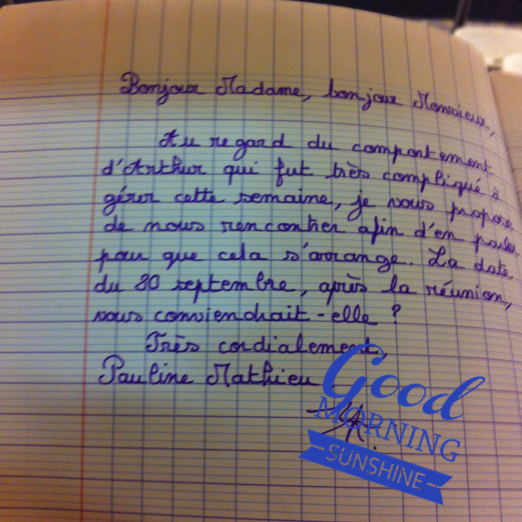 Bonjour Madame, bonjour Monsieur,
Au regard du comportement
d'Arthur qui fut très compliqué à
gérer cette semaine, je vous propose
de nous rencontrer afin d'en parler
pour que cela s'arrange. La date
du 30 septembre, après la réunion,
vous conviendrait-elle ?
Très cordialement,
Pauline Mathieu.
Good
MORNING
SUNSHINE